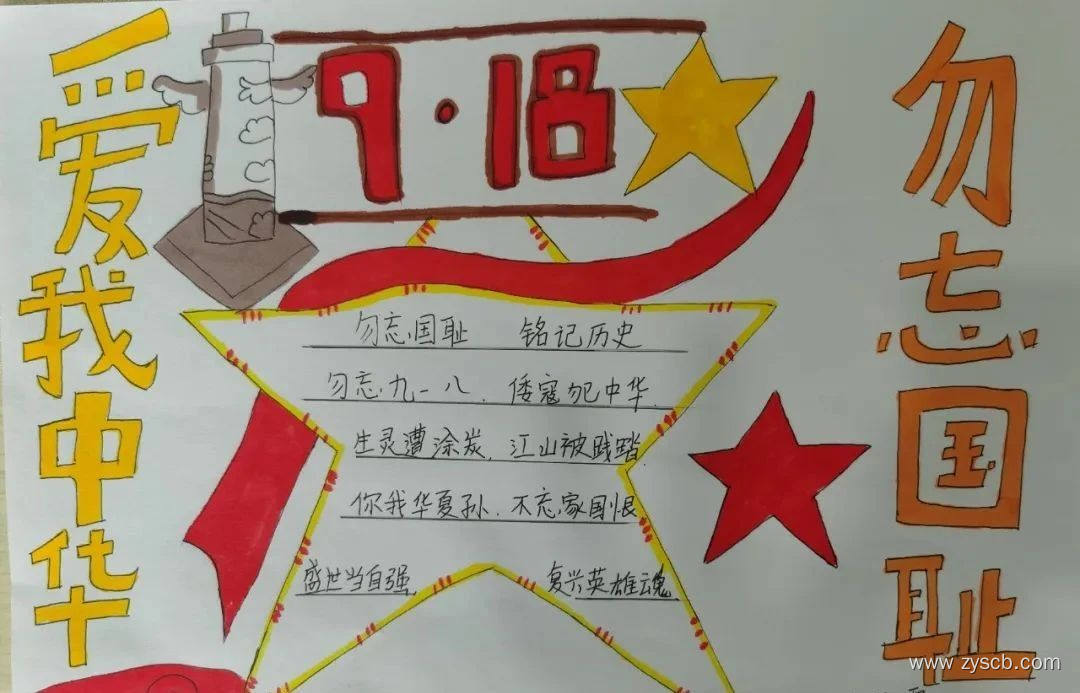 爱我中华
9·18
勿忘国耻
勿忘国耻 铭记历史
勿忘九一八，倭寇犯中华
生灵遭涂炭，江山被践踏
你我华夏孙，不忘家国恨
盛世当自强，复兴英雄魂
www.zyscb.com